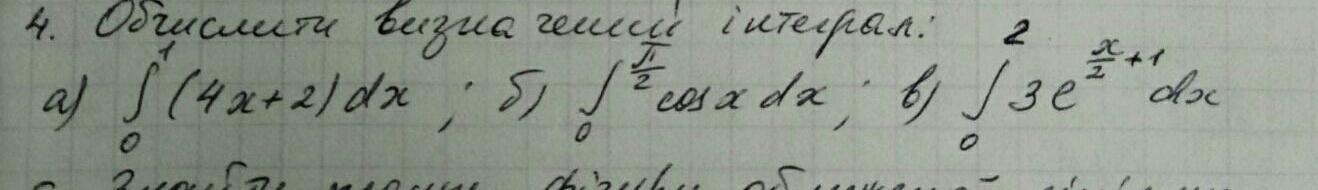 4. Обчислити визначений інтеграл:
а) ∫₀¹ (4x+2) dx ; б) ∫₀^{π/2} cos x dx ; в) ∫₀² 3e^{x/2 + 1} dx